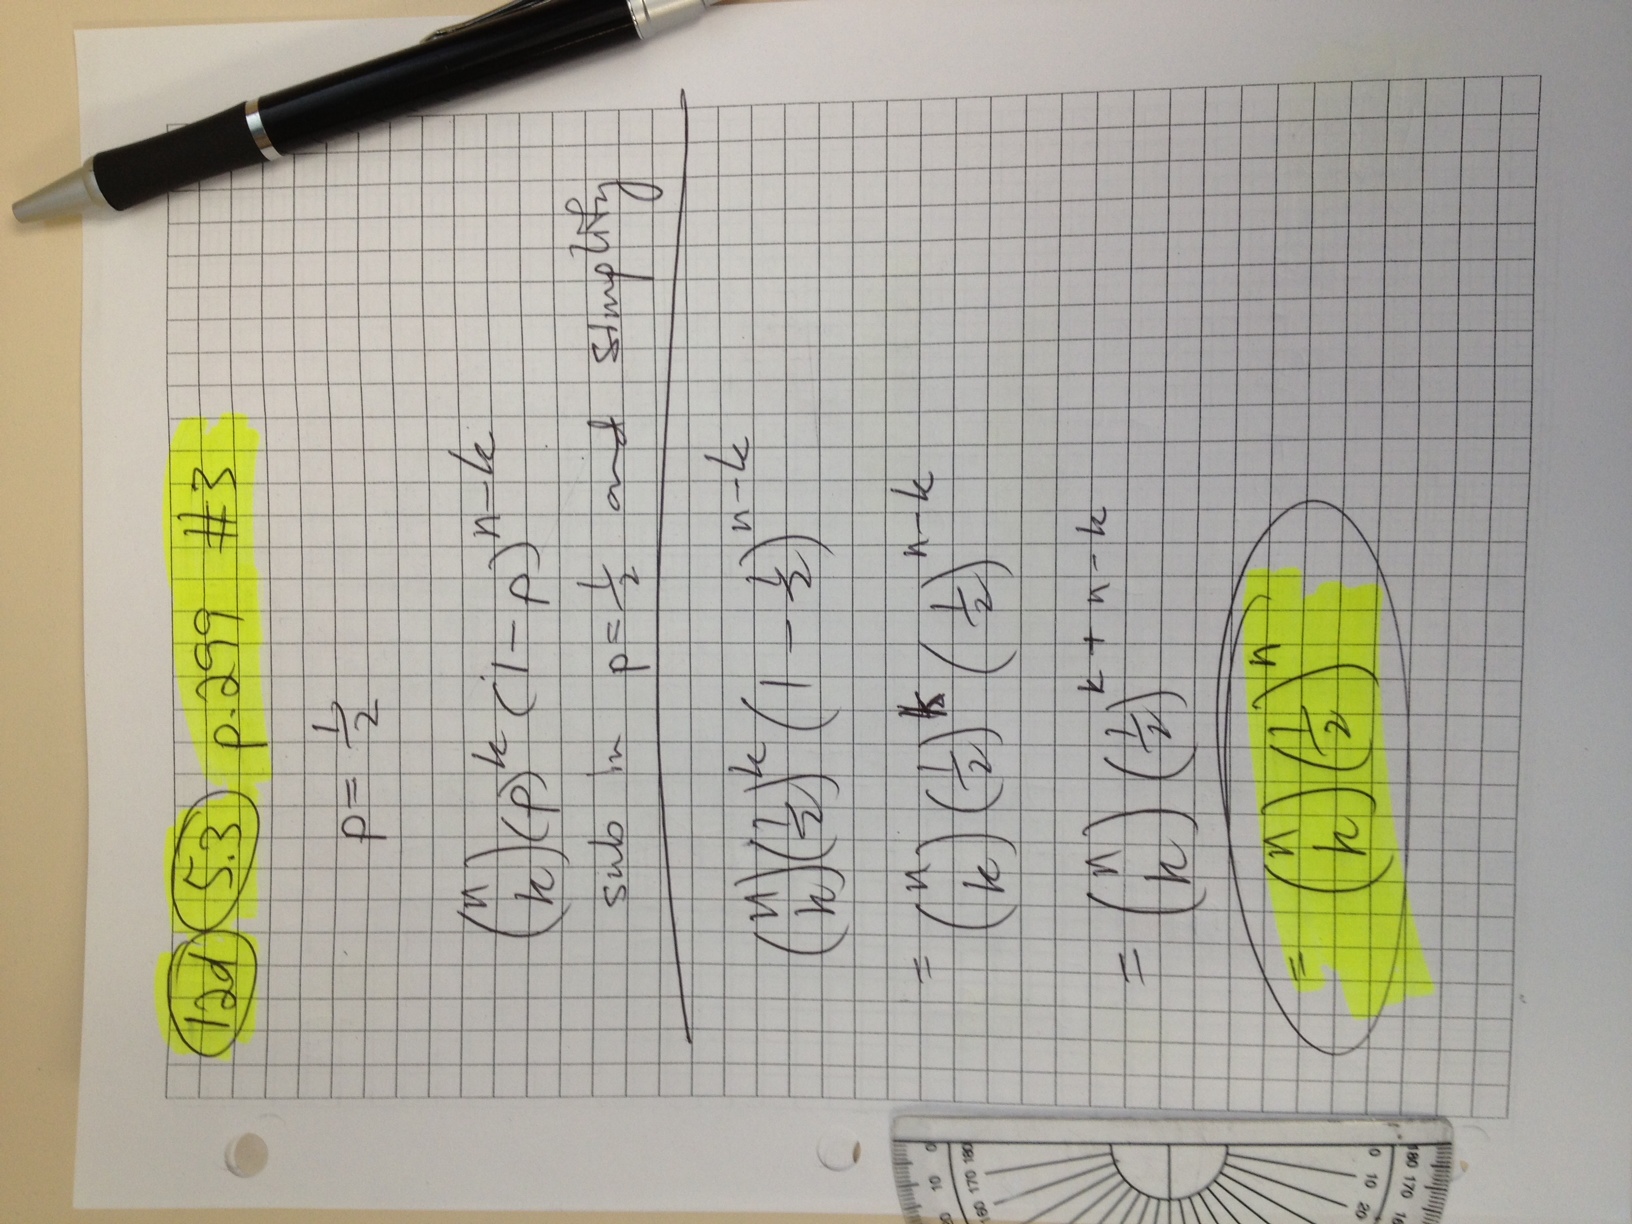 12d 5.3 p.299 #3
p = 1/2
(n k)(p)^k (1 - p)^n-k
sub in p = 1/2 and simplify
(n k)(1/2)^k (1 - 1/2)^n-k
= (n k)(1/2)^k (1/2)^n-k
= (n k)(1/2)^k+n-k
= (n k)(1/2)^n
0 10
180 170 160
0 10 20
180 170